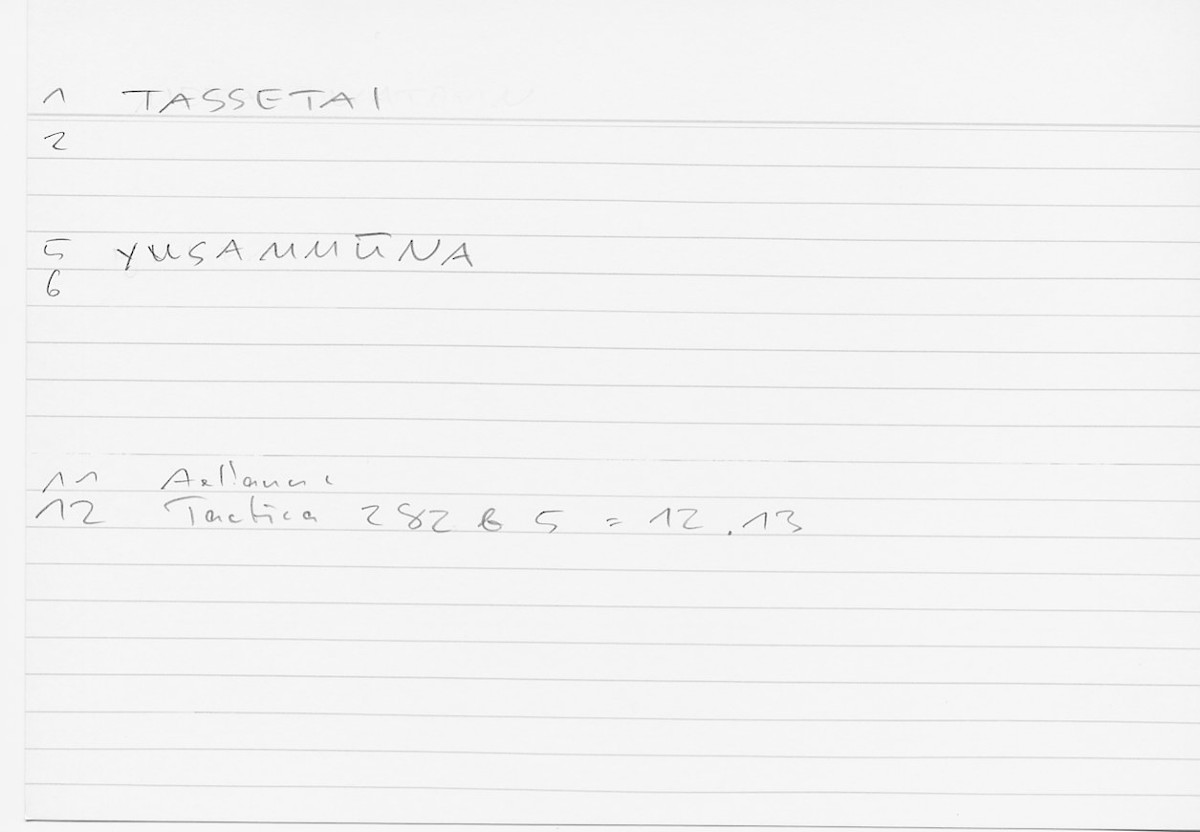 1 TASSETAI
2
5 YUSAMMŪNA
6
11 Aeliani
12 Tactica 282 b 5 = 12.13